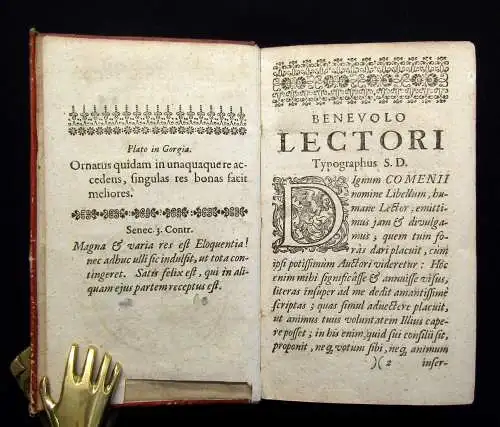 Plato in Gorgia.
Ornatus quidam in unaquaque re ac-
cedens, singulas res bonas facit
meliores.
Senec. 3. Contr.
Magna & varia res est Eloquentia!
nec adhuc ulli sic indulsit, ut tota con-
tingeret. Satis felix est, qui in ali-
quam ejus partem receptus est.
BENEVOLO
LECTORI
Typographus S. D.
DIgnum COMENII
nomine Libellum, hu-
mane Lector, emitti-
mus jam & divulga-
mus; quem tum fo-
ràs dari placuit, cum
ipsi potissimum Auctori videretur: Hic
enim mihi significâsse & annuisse visus,
literas insuper ad me dedit amantissimè
scriptas; quas simul advectere placuit,
ut animus tuus voluntatem Illius cape-
re posset; in his enim, quid sui consilii sit,
proponit, neq; votum sibi, neq; animum
)( 2 inser-